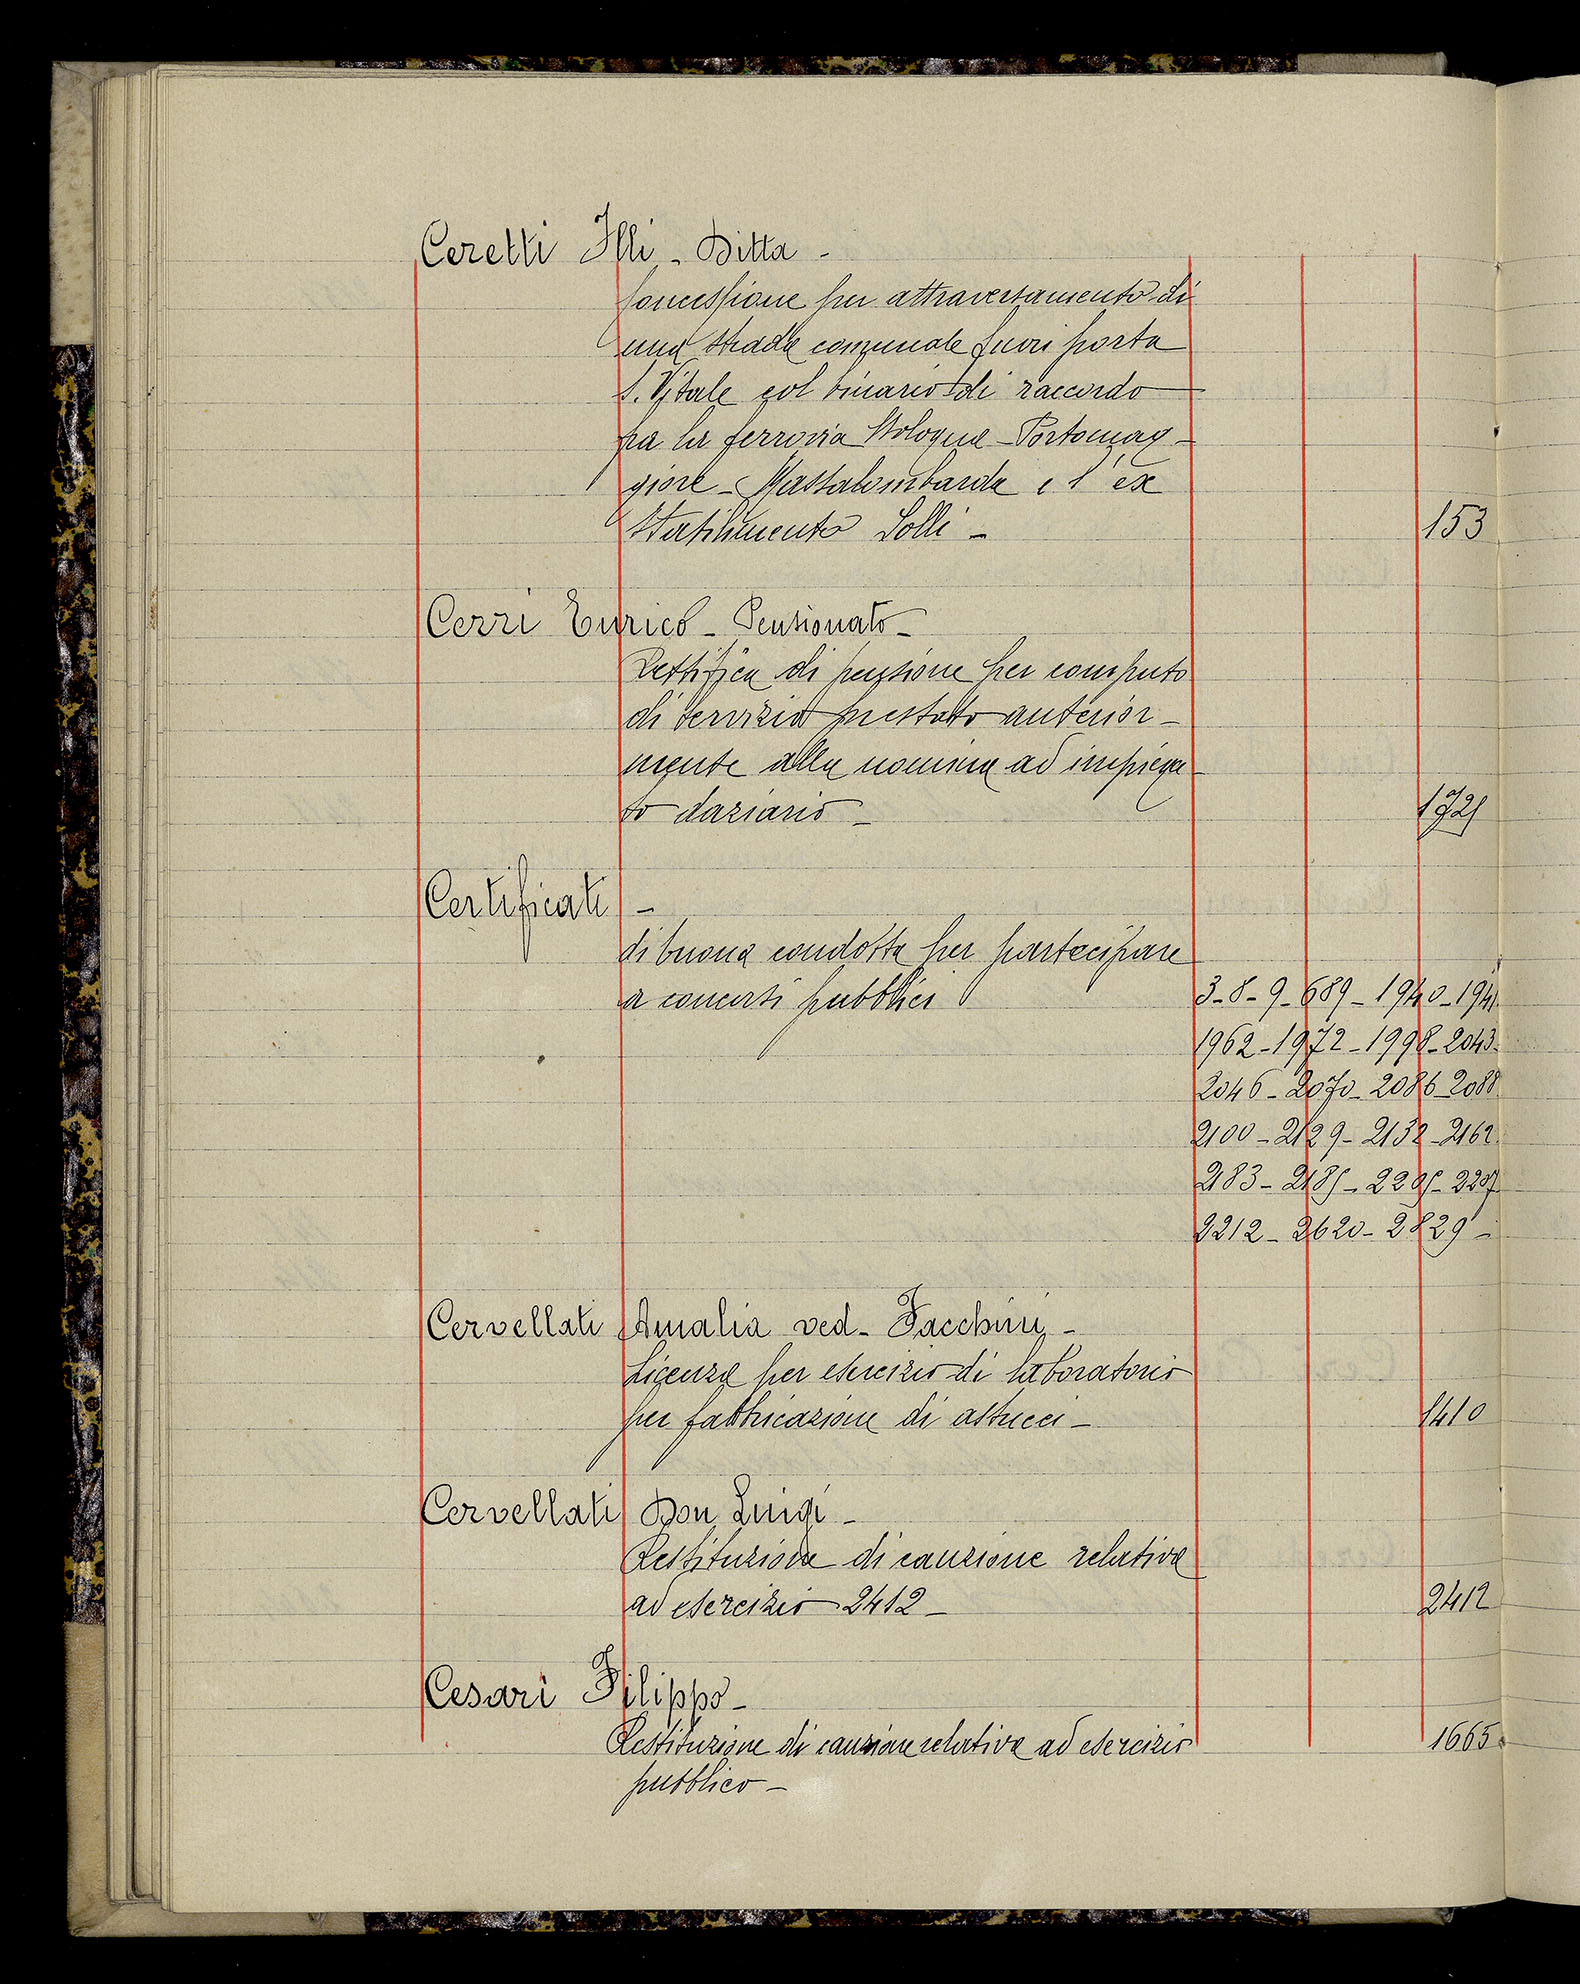 Ceretti Flli - Ditta -
Concessione per attraversamento di
una strada comunale fuori porta
S. Vitale col binario di raccordo
fra la ferrovia Bologna - Portomag-
giore - Massalombarda e l'ex
Stabilimento Solli - 153
Cerri Enrico - Pensionato -
Rettifica di pensione per computo
di servizio prestato anterior-
mente alla nomina ad impiega-
to daziario - 1725
Certificati -
di buona condotta per partecipare
a concerti pubblici 3-8-9-689-1940-1941
1962-1972-1998-2043-
2046-2070-2086-2088
2100-2129-2132-2162
2183-2185-2205-2207
2212-2620-2829-
Cervellati Amalia ved. Facchini -
Licenza per esercizio di laboratorio
per fabbricazione di astucci - 1410
Cervellati Don Luigi -
Restituzione di cauzione relativa
ad esercizio 2412 - 2412
Cesari Filippo -
Restituzione di cauzione relativa ad esercizio 1665
pubblico -